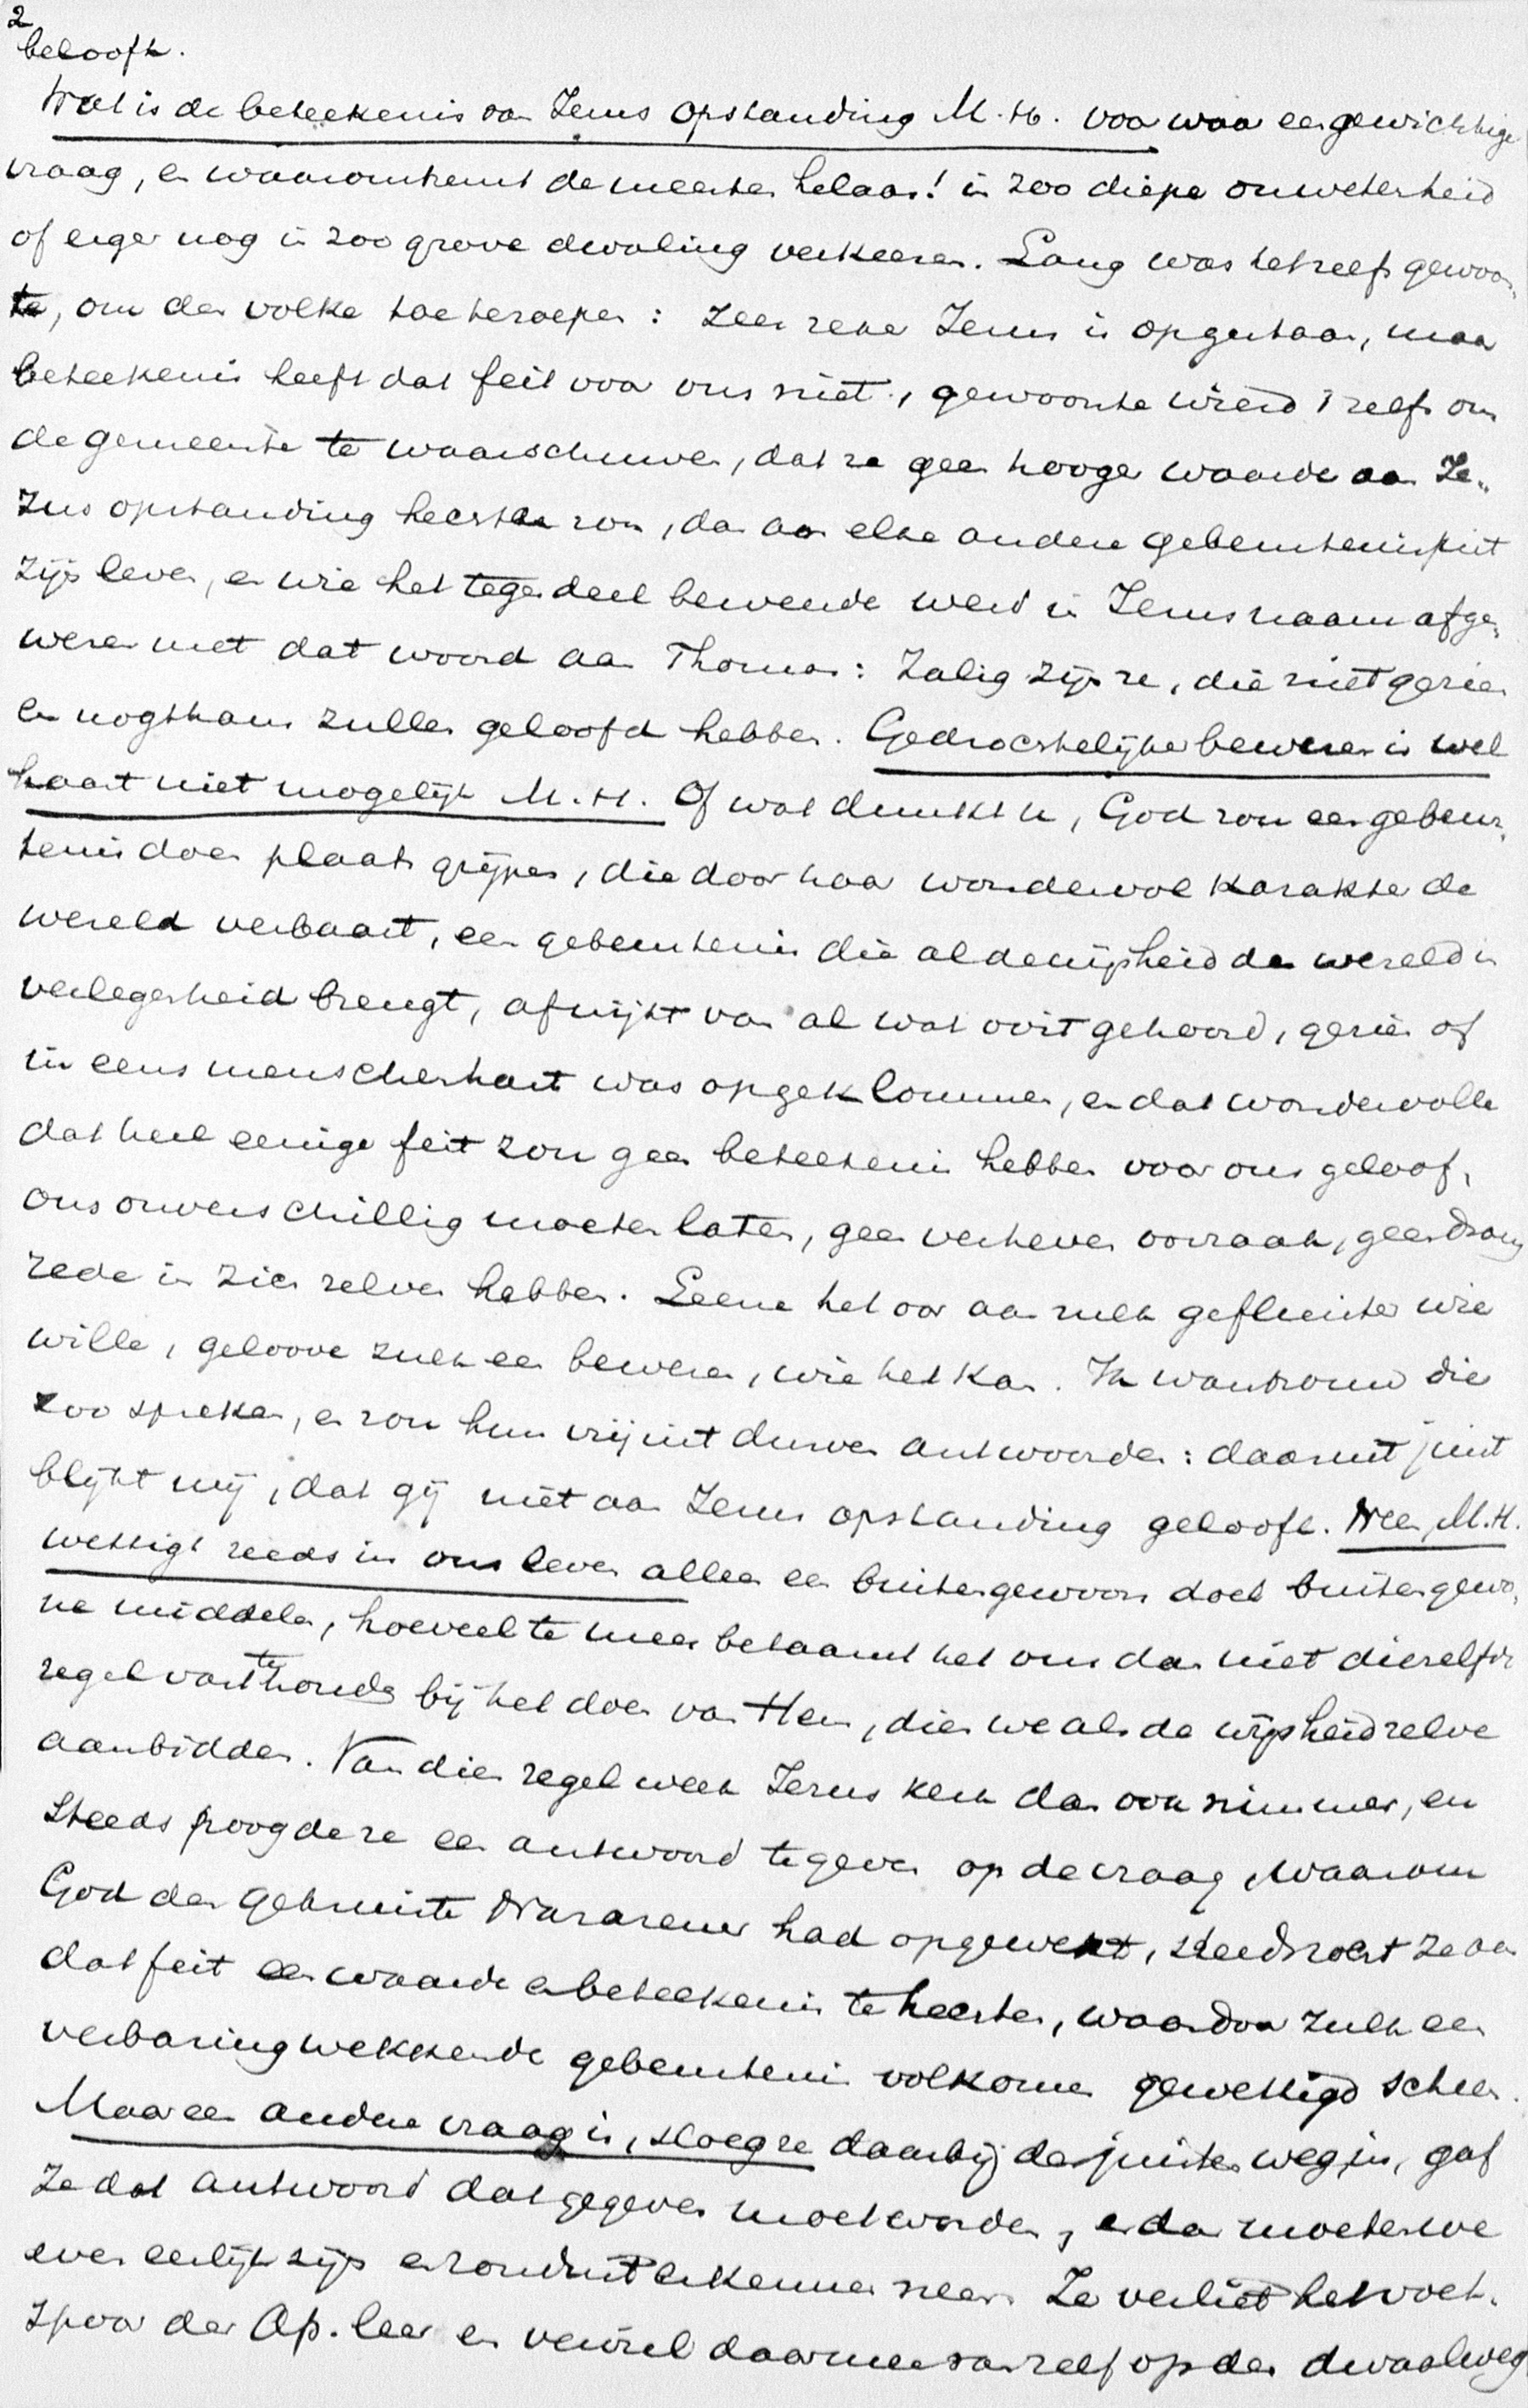 2
belooft.
Wat is de beteekenis van Jezus opstanding M.H. voorwaar een gewichtige
vraag, en waaromtrent de meesten helaas! in zoo diepe onwetenheid
of erger nog in zoo grove dwaling verkeeren. Lang was het zelfs gewoon„
te, om den volke toeteroepen: zeer zeker Jezus is opgestaan, maar
beteekenis heeft dat feit voor ons niet, gewoonte wierd 't zelfs om
de gemeente te waarschuwen, dat ze geen hooger waarde aan Je„
zus opstanding hechten zou, dan aan elke andere gebeurtenis uit
zijn leven, en wie het tegendeel beweerde werd in Jezus naam afge„
wezen met dat woord aan Thomas: Zalig zijn ze, die niet gezien
en nogthans zullen geloofd hebben. Gedrochtelijker beweren is wel
haast niet mogelijk M.H. Of wat dunkt u, God zou een gebeur„
tenis doen plaats grijpen, die door haar wondervol karakter de
wereld verbaast, een gebeurtenis die al de wijsheid der wereld in
verlegenheid brengt, afwijkt van al wat ooit gehoord, gezien of
in eens menschenhart was opgeklommen, en dat wondervolle
dat heel eenige feit zou geen beteekenis hebben voor ons geloof,
ons onverschillig moeten laten, geen verheven oorzaak, geen drang
rede in zich zelven hebben. Leene het oor aan zulk gefluister wie
wille, geloove zulk een beweren, wie het kan. Ik wantrouw die
zoo spreken, en zou hun vrij uit durven antwoorden: daaruit juist
blijkt mij, dat gij niet aan Jezus opstanding gelooft. Neen, M.H.
wettigt reeds in ons leven alleen een buitengewoon doel buitengewo„
ne middelen, hoeveel te meer betaamt het ons dan niet dienzelfden
regel vast te houden bij het doen van Hem, dien we als de wijsheid zelve
aanbidden. Van dien regel week Jezus kerk dan ook nimmer, en
steeds poogde ze een antwoord te geven op de vraag, waarom
God den gekruiste Nazarener had opgewekt, steeds zocht ze aan
dat feit een waarde en beteekenis te hechten, waardoor zulk een
verbazingwekkende gebeurtenis volkomen gewettigd scheen.
Maar een andere vraag is, sloeg ze daarbij den juisten weg in, gaf
ze dat antwoord dat gegeven moet worden, en dan moeten we
even eerlijk zijn en ronduit erkennen neen. Ze verliet het voet„
spoor der Ap. leer en verviel daarmee van zelf op den dwaalweg